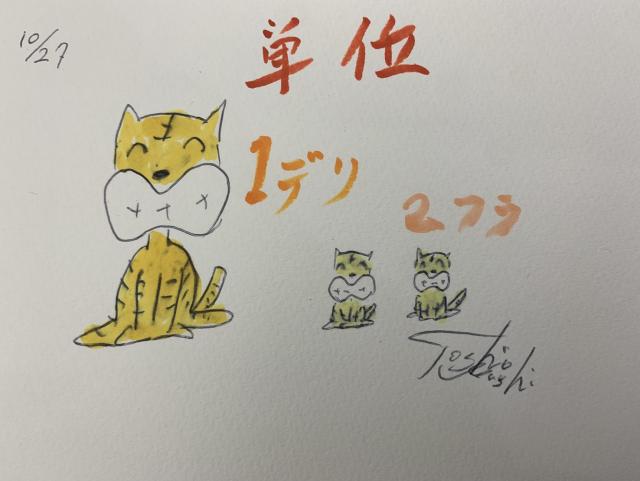 10/27
単位
1デリ
2フラ